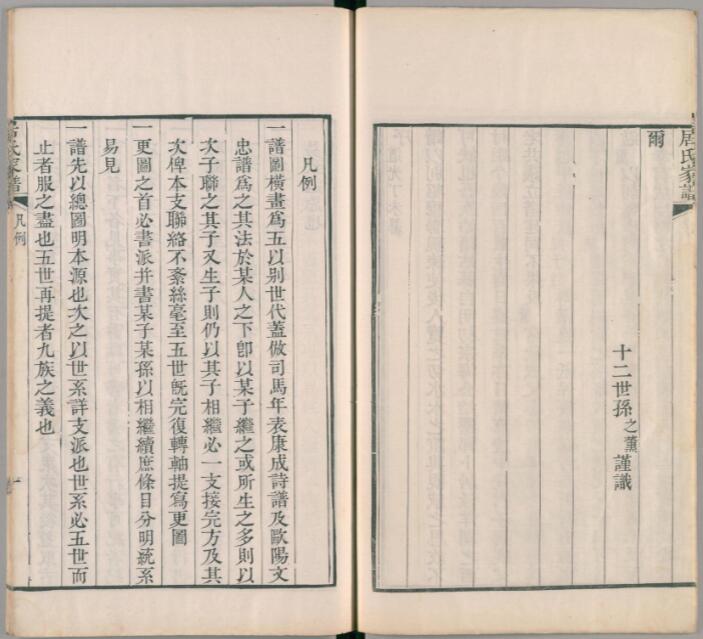 居氏家譜
爾
十二世孫之薰謹識
凡例
一譜圖橫畫爲五以别世代蓋倣司馬年表康成詩譜及歐陽文
忠譜爲之其法於某人之下卽以某子繼之或所生之多則以
次子聯之其子又生子則仍以其子相繼必一支接完方及其
次俾本支聯絡不紊絲毫至五世旣完復轉軸提寫更圖
一更圖之首必書派并書某子某孫以相繼續庶條目分明統系
易見
一譜先以總圖明本源也次之以世系詳支派也世系必五世而
止者服之盡也五世再提者九族之義也
居氏家譜
凡例
一